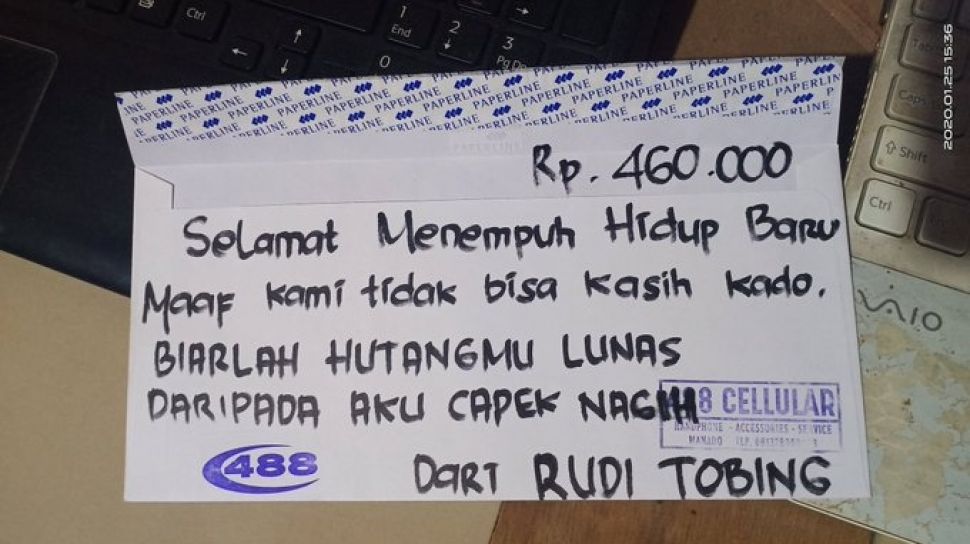 Ctrl
1
End
2
3
Pg Dn
0
PAPERLINE PAPERLINE PAPERLINE PAPERLINE PAPERLINE PAPERLINE
2020.01.25 15:36
Caps
Shift
Ctrl
VAIO
Rp. 460.000
Selamat Menempuh Hidup Baru
Maaf kami tidak bisa kasih kado.
BIARLAH HUTANGMU LUNAS
DARIPADA AKU CAPEK NAGIH
8 CELLULAR
HANDPHONE - ACCESSORIES - SERVICE
MANADO TLP.
488
DARI RUDI TOBING